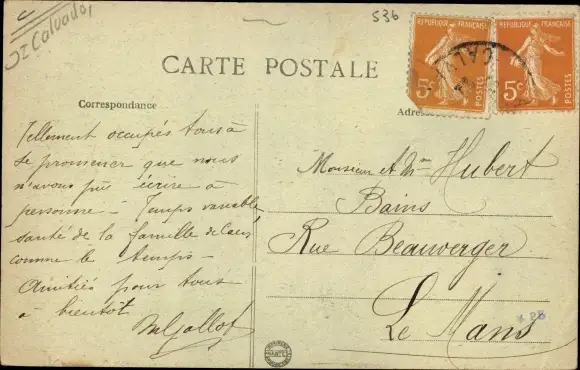 Calvados
536
CARTE POSTALE
REPUBLIQUE FRANÇAISE
5c
POSTES
REPUBLIQUE FRANÇAISE
5c
POSTES
CAL
Correspondance
Tellement occupés tous à
se promener que nous
n'avons pu écrire à
personne - Temps variable,
santé de la famille de Caen
comme le temps -
Amitiés pour tous
à bientôt
MGallot
Adres
Monsieur et Mme Hubert
Bains
Rue Beauverger
Le Mans
NANTES